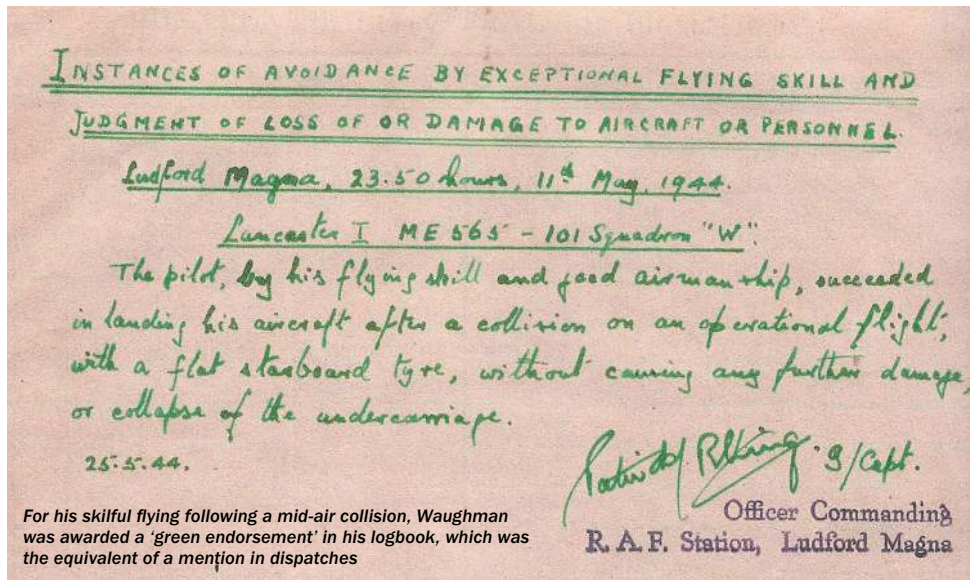 INSTANCES OF AVOIDANCE BY EXCEPTIONAL FLYING SKILL AND
JUDGMENT OF LOSS OF OR DAMAGE TO AIRCRAFT OR PERSONNEL.
Ludford Magna, 23.50 hours, 11th May, 1944.
Lancaster I ME 565 - 101 Squadron "W".
The pilot, by his flying skill and good airmanship, succeeded
in landing his aircraft after a collision on an operational flight,
with a flat starboard tyre, without causing any further damage,
or collapse of the undercarriage.
25.5.44.
King. G/Capt.
Officer Commanding
R.A.F. Station, Ludford Magna
For his skilful flying following a mid-air collision, Waughman
was awarded a ‘green endorsement’ in his logbook, which was
the equivalent of a mention in dispatches